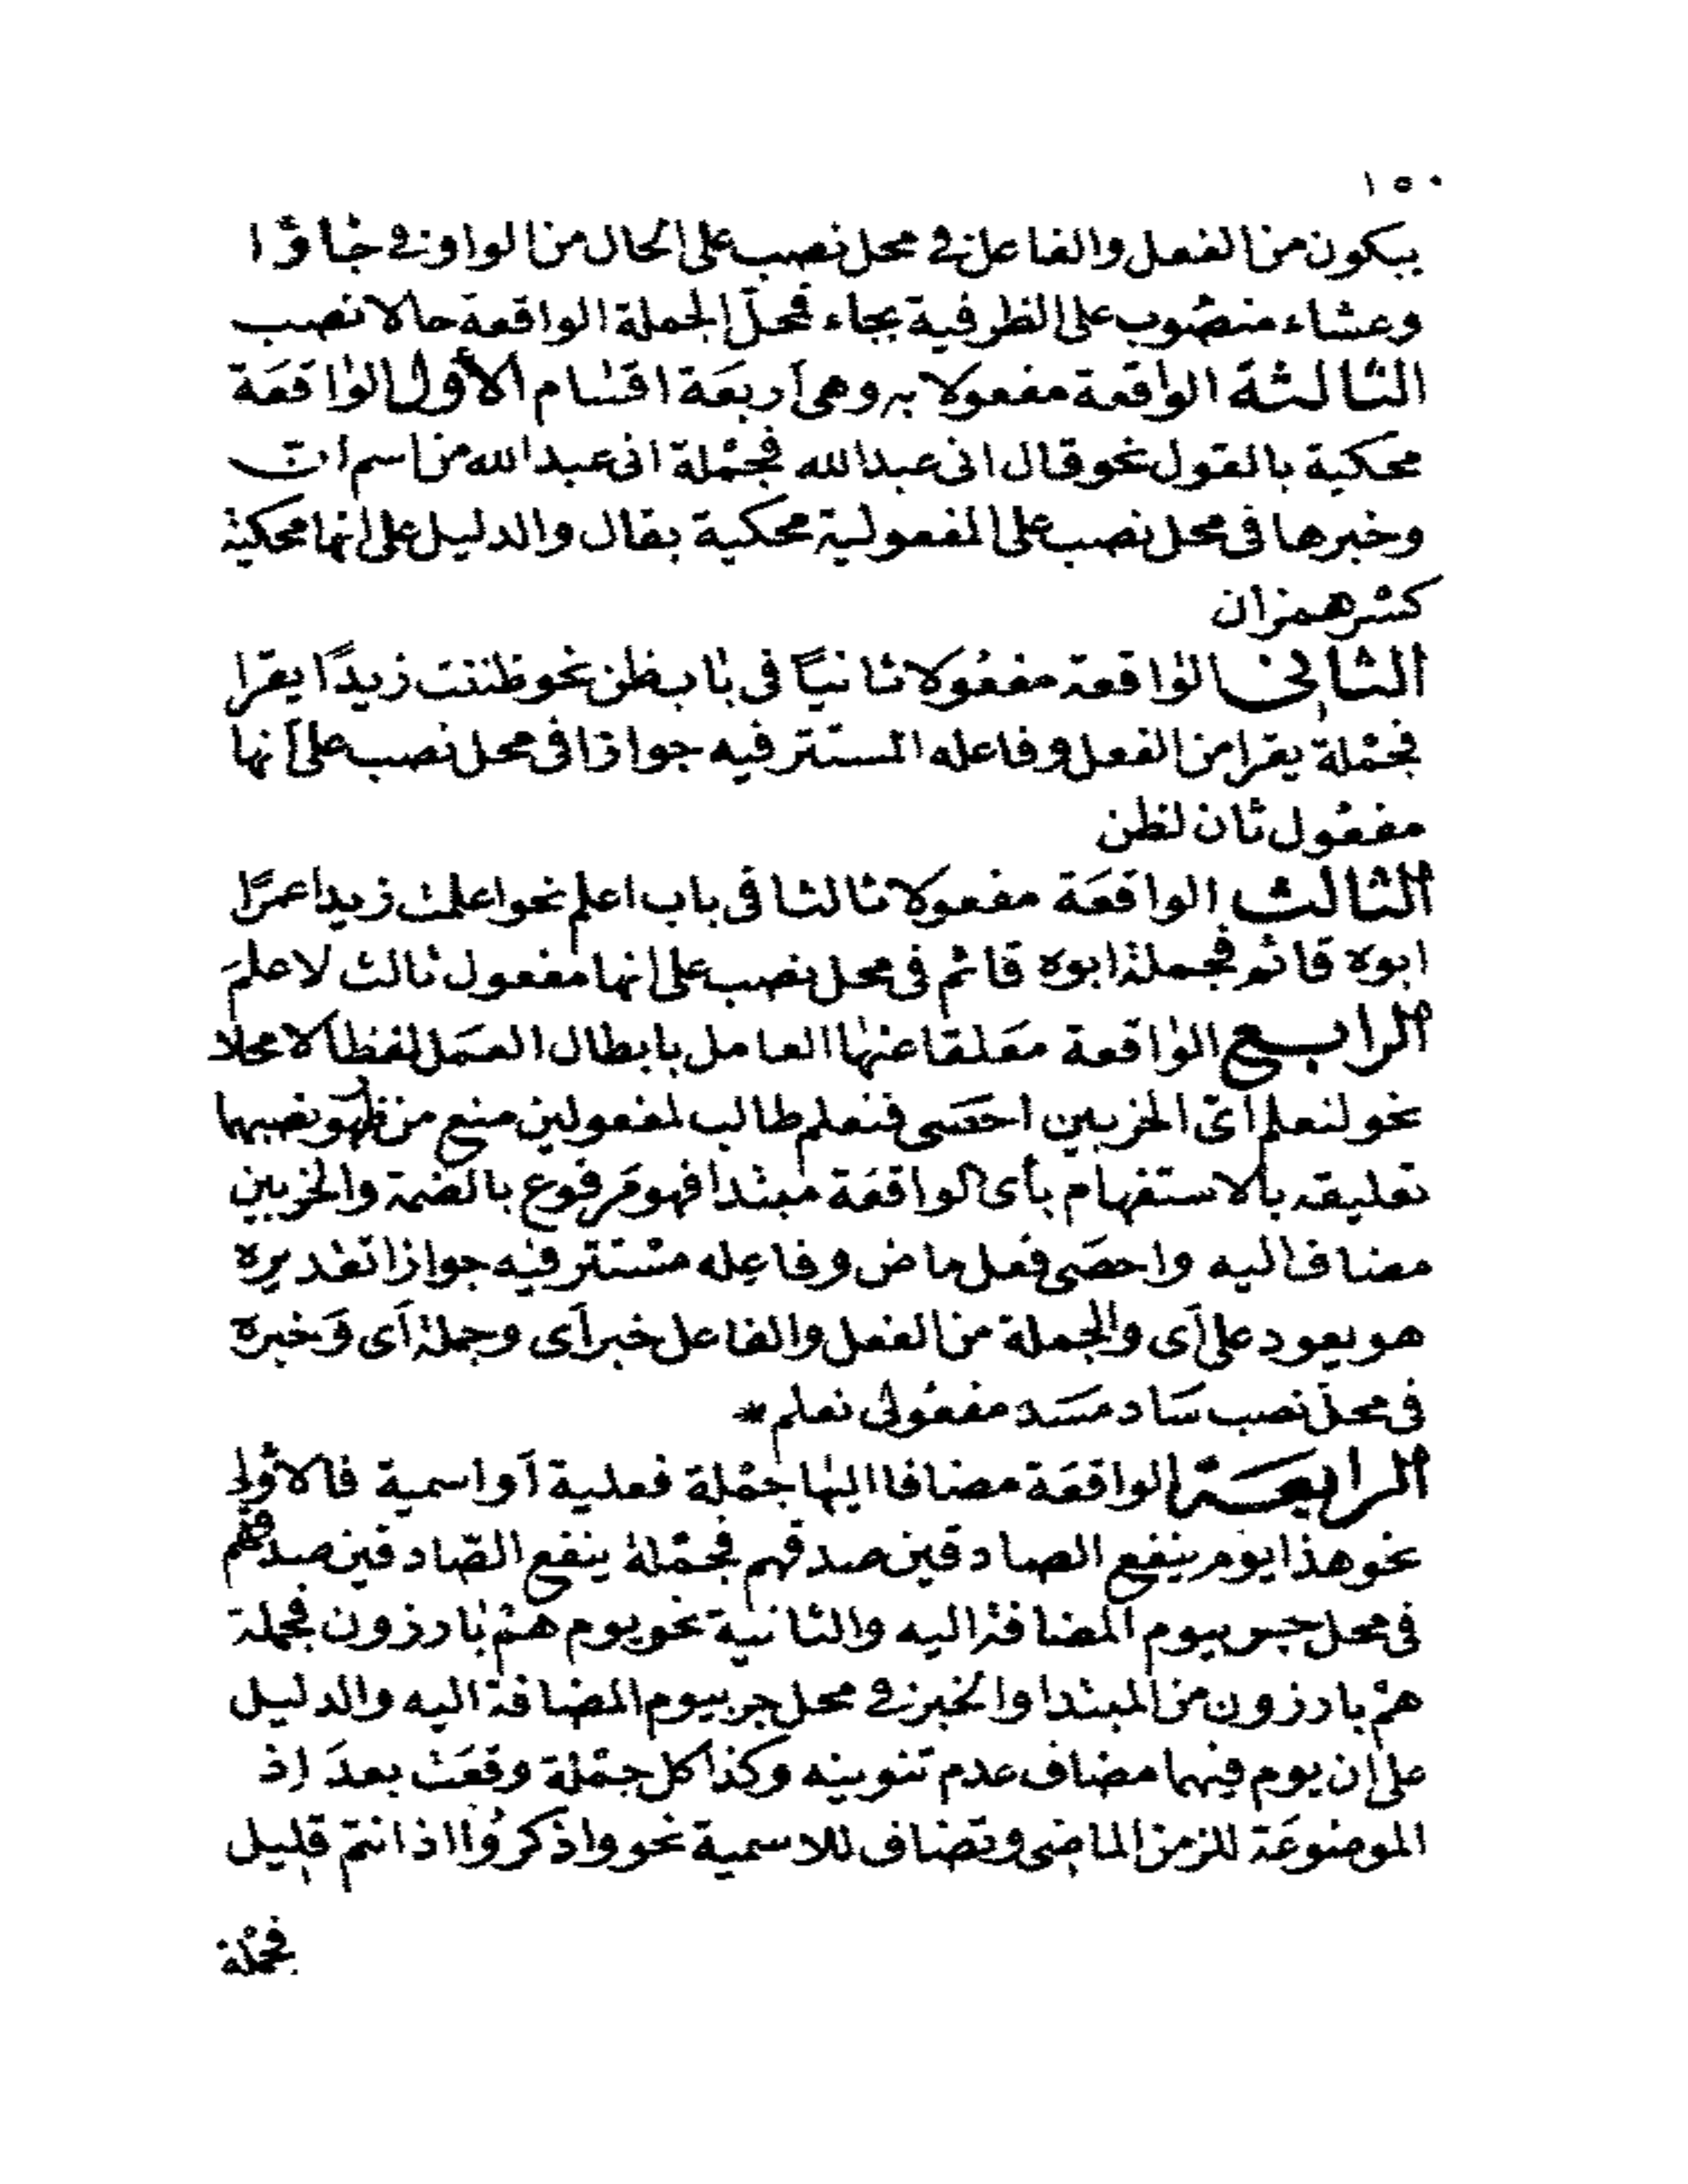 ١٥٠
يبكون من الفعل والفاعل في محل نصب على الحال من الواو في جاؤا
وعشاء منصوب على الظرفية بجاء فمحل الجملة الواقعة حالا نصب
الثالثة الواقعة مفعولا به وهي أربعة اقسام الأول الواقعة
محكية بالقول نحو قال انى عبد الله فجملة انى عبد الله من اسم ان
وخبرها فى محل نصب على المفعولية محكية بقال والدليل على انها محكية
كسر همزة ان
الثانى الواقعة مفعولا ثانيًا فى باب ظن نحو ظننت زيدًا يقرا
فجملة يقرا من الفعل وفاعله المستتر فيه جوازا فى محل نصب على أنها
مفعول ثان لظن
الثالث الواقعة مفعولا ثالثا فى باب اعلم نحو اعلمت زيدا عمرًا
ابوه قائم فجملة ابوه قائم فى محل نصب على انها مفعول ثالث لاعلمَ
الرابع الواقعة معلقا عنها العامل بابطال العمل لفظا لا محلا
نحو لنعلم اى الحزبين احصى فنعلم طالب لمفعولين منع من ظهور نصبهما
تعليقه بالاستفهام بأى الواقعة مبتدا فهو مرفوع بالضمة والحزبين
مضاف اليه واحصى فعل ماض وفاعله مستتر فيه جوازا تقديره
هو يعود على أى والجملة من الفعل والفاعل خبر أى وجملة أى وخبره
فى محل نصب ساد مسد مفعولى نعلم *
الرابعة الواقعة مضافا اليها جملة فعلية أو اسمية فالاولى
نحو هذا يوم ينفع الصادقين صدقهم فجملة ينفع الصّادقين صدقهم
فى محل جر بيوم المضافة اليه والثانية نحو يوم هم بارزون فجملة
هم بارزون من المبتدا والخبر في محل جر بيوم المضافة اليه والدليل
على ان يوم فيهما مضاف عدم تنوينه وكذا كل جملة وقعت بعدَ اِذ
الموضوعة للزمن الماضى وتضاف للاسمية نحو واذكرُوا اذ انتم قليل
فجملة